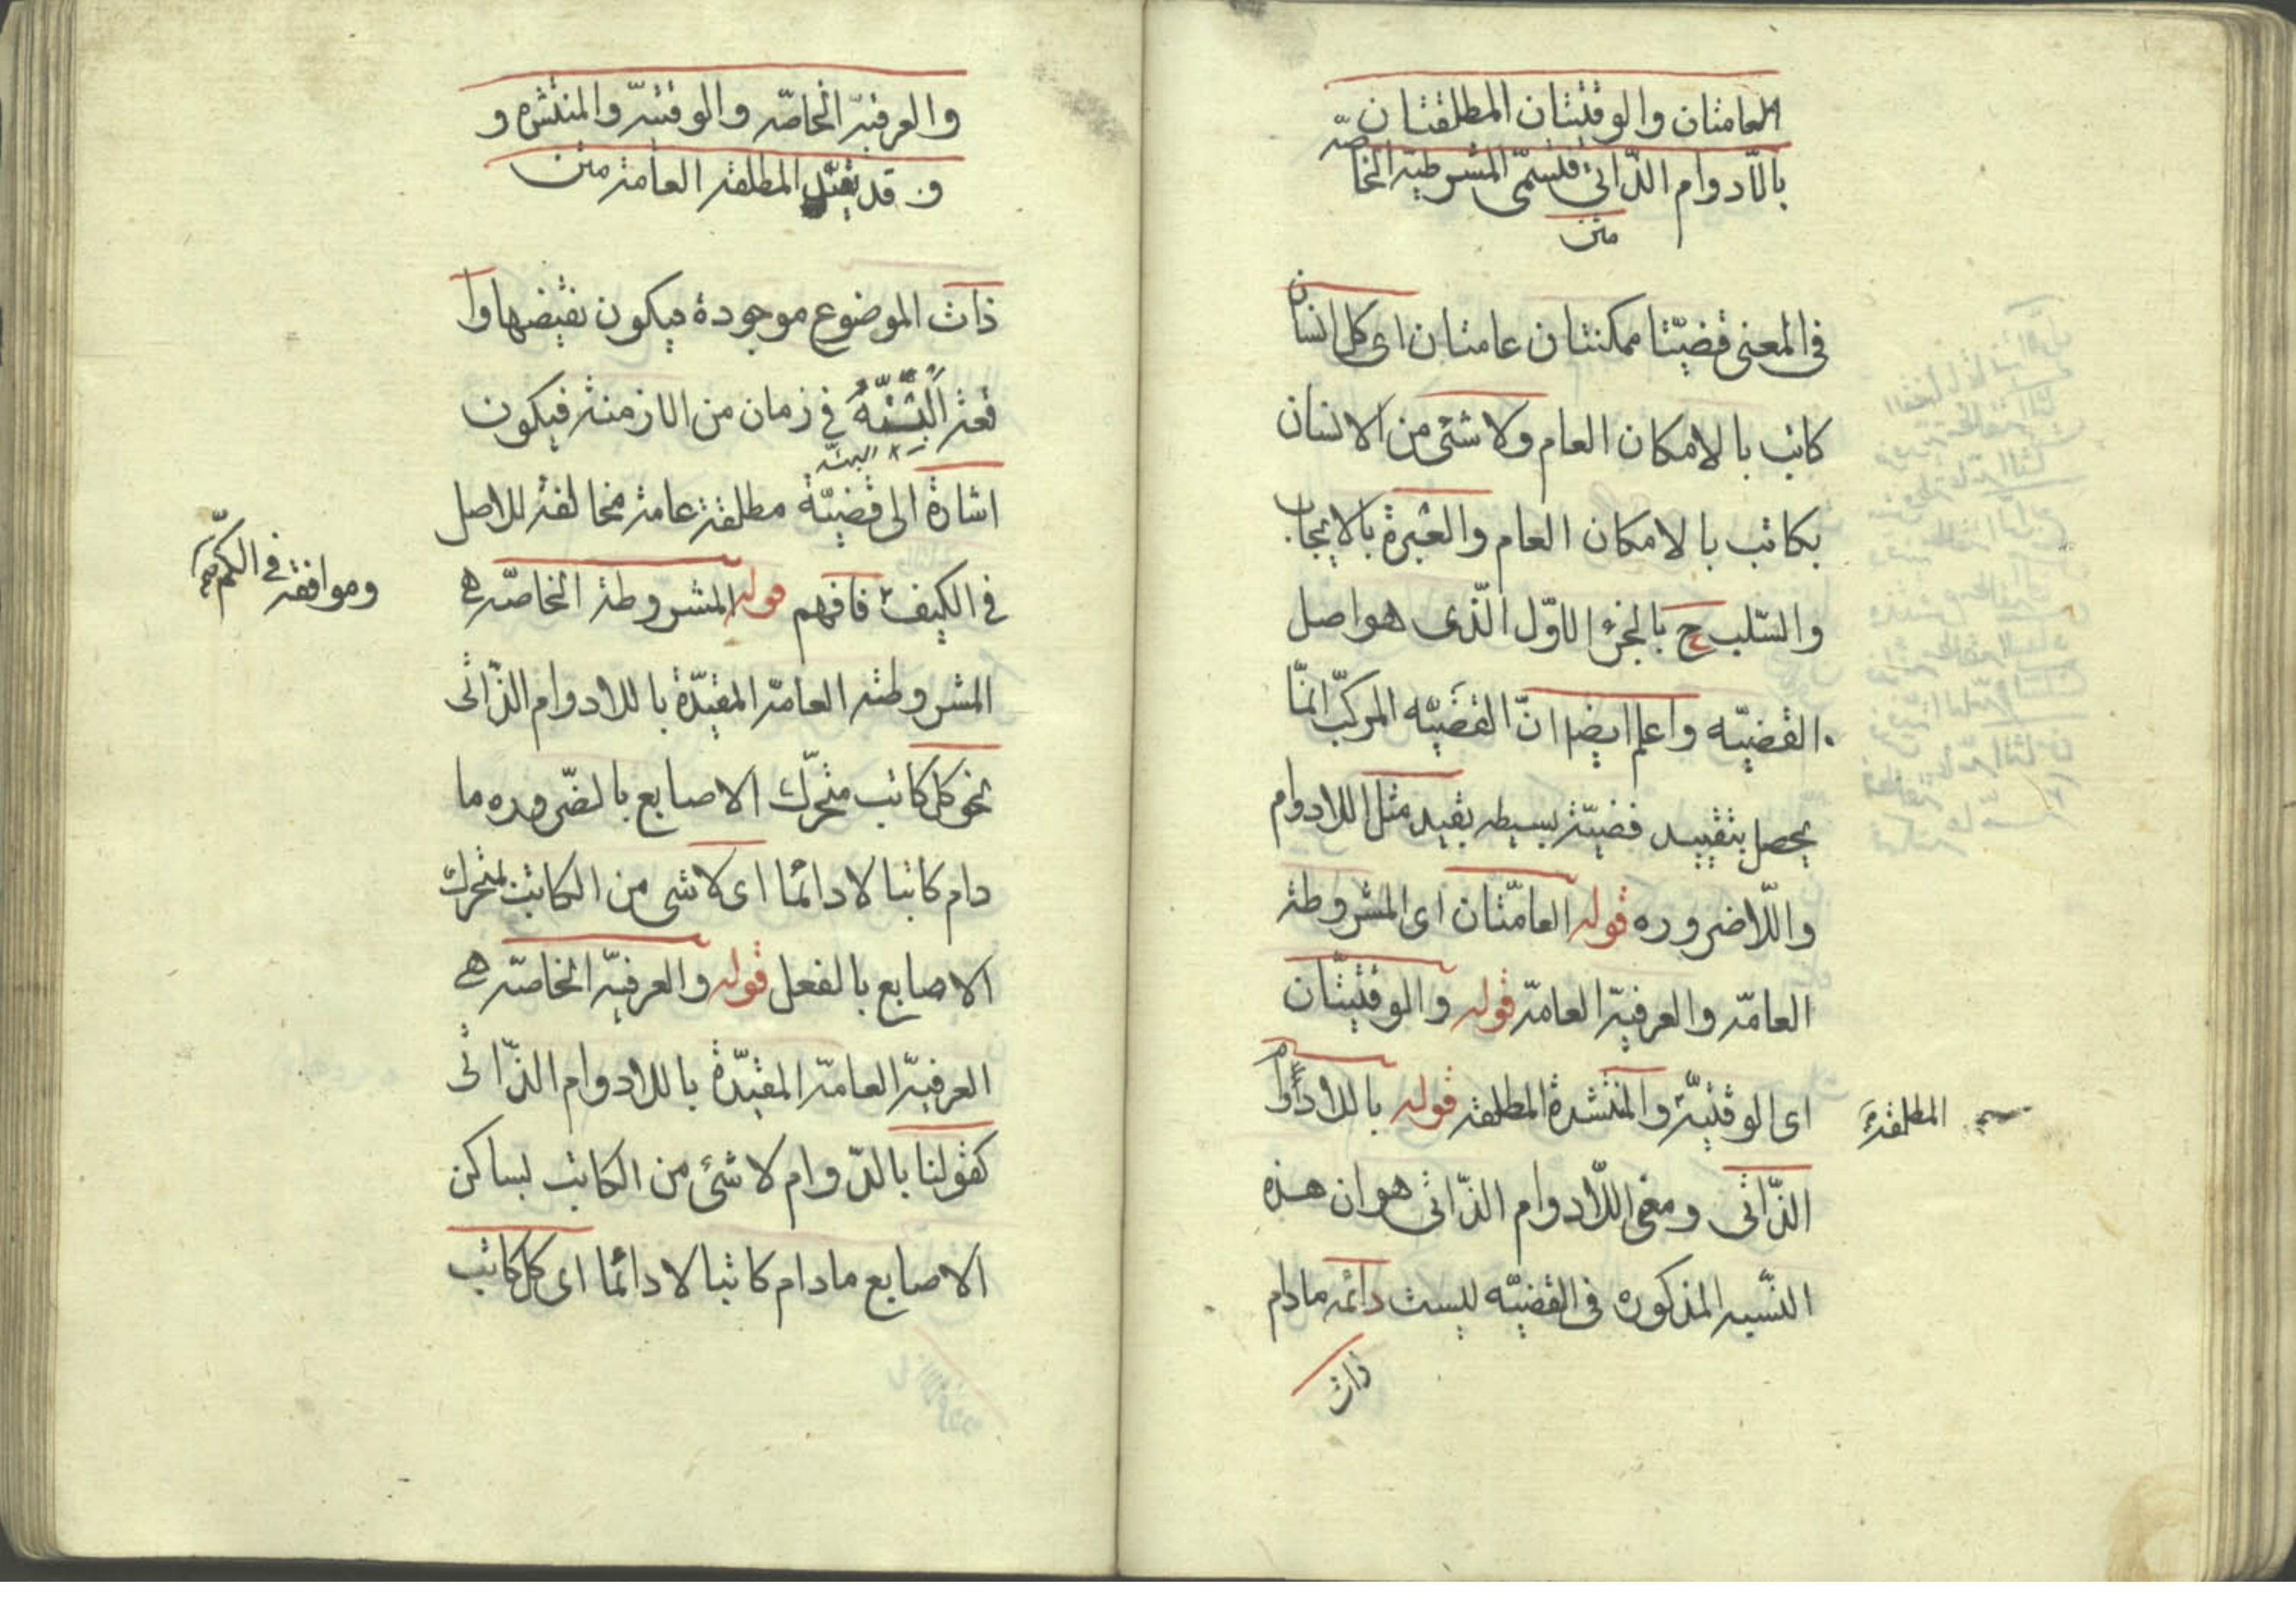 العامتان والوقتيتان المطلقتان
باللادوام الذّاتي فتسمّى المشروطيّة الخاصّه
متن
في المعنى قضيّتا ممكنتان عامتان اى كل انسان
كاتب بالامكان العام ولا شئ من الانسان
بكاتب بالامكان العام والعبرة بالايجاب
والسّلب ح بالجزء الاوّل الّذى هو اصل
القضيّه واعلم ايضا انّ القضيّه المركبّ انمّا
يحصل بتقييد قضيّة بسيطه بقيد مثل اللادوام
واللّاضروره قوله العامّتان اى المشروطة
العامّه والعرفيّة العامّة قوله والوقتيتّان
اى الوقتيّة والمنتشرة المطلقة قوله باللادوام
المطلقة
الذّاتى ومعنى اللّادوام الذّاتى هو ان هذه
النّسبه المذكوره في القضيّه ليست دائمه مادام
ذات
والعرفيّة الخاصّه والوقتيّه والمنتشره و
و قد تقيّد المطلقة العامة متن
ذات الموضوع موجودة فيكون نقيضها وا
قعة البتّة في زمان من الازمنة فيكون
البتّه
اشارة الى قضيّة مطلقة عامة مخالفة للاصل
في الكيف فافهم قوله المشروطة الخاصّة هي
وموافقة في الكمّ
المشروطة العامّة المقيّدة باللادوام الذّاتى
نحو كل كاتب متحرّك الاصابع بالضّروره ما
دام كاتبا لا دائما اى لا شى من الكاتب بمتحرك
الاصابع بالفعل قوله والعرفيّة الخاصّة هي
العرفيّة العامّة المقيّدة باللادوام الذّاتى
كقولنا بالدّوام لا شئ من الكاتب بساكن
الاصابع مادام كاتبا لا دائما اى كل كاتب